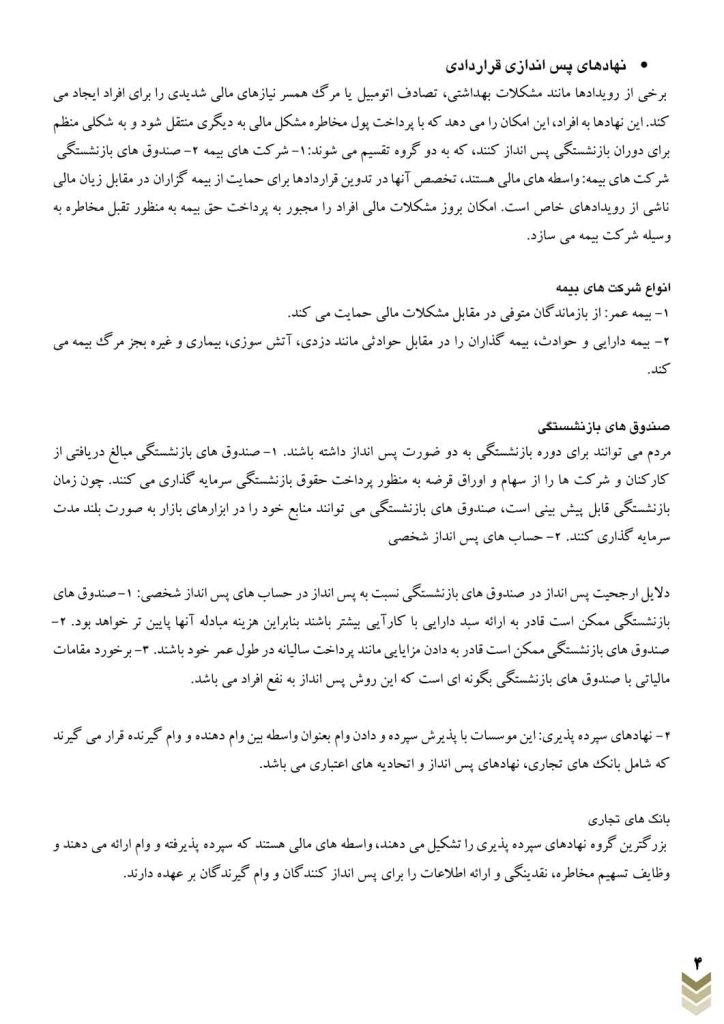 • نهادهای پس اندازی قراردادی
برخی از رویدادها مانند مشکلات بهداشتی، تصادف اتومبیل یا مرگ همسر نیازهای مالی شدیدی را برای افراد ایجاد می
کند. این نهادها به افراد، این امکان را می دهد که با پرداخت پول مخاطره مشکل مالی به دیگری منتقل شود و به شکلی منظم
برای دوران بازنشستگی پس انداز کنند، که به دو گروه تقسیم می شوند:۱- شرکت های بیمه ۲- صندوق های بازنشستگی
شرکت های بیمه: واسطه های مالی هستند، تخصص آنها در تدوین قراردادها برای حمایت از بیمه گزاران در مقابل زیان مالی
ناشی از رویدادهای خاص است. امکان بروز مشکلات مالی افراد را مجبور به پرداخت حق بیمه به منظور تقبل مخاطره به
وسیله شرکت بیمه می سازد.
انواع شرکت های بیمه
۱- بیمه عمر: از بازماندگان متوفی در مقابل مشکلات مالی حمایت می کند.
۲- بیمه دارایی و حوادث، بیمه گذاران را در مقابل حوادثی مانند دزدی، آتش سوزی، بیماری و غیره بجز مرگ بیمه می
کند.
صندوق های بازنشستگی
مردم می توانند برای دوره بازنشستگی به دو ضورت پس انداز داشته باشند. ۱- صندوق های بازنشستگی مبالغ دریافتی از
کارکنان و شرکت ها را از سهام و اوراق قرضه به منظور پرداخت حقوق بازنشستگی سرمایه گذاری می کنند. چون زمان
بازنشستگی قابل پیش بینی است، صندوق های بازنشستگی می توانند منابع خود را در ابزارهای بازار به صورت بلند مدت
سرمایه گذاری کنند. ۲- حساب های پس انداز شخصی
دلایل ارجحیت پس انداز در صندوق های بازنشستگی نسبت به پس انداز در حساب های پس انداز شخصی: ۱-صندوق های
بازنشستگی ممکن است قادر به ارائه سبد دارایی با کارآیی بیشتر باشند بنابراین هزینه مبادله آنها پایین تر خواهد بود. ۲-
صندوق های بازنشستگی ممکن است قادر به دادن مزایایی مانند پرداخت سالیانه در طول عمر خود باشند. ۳- برخورد مقامات
مالیاتی با صندوق های بازنشستگی بگونه ای است که این روش پس انداز به نفع افراد می باشد.
۴- نهادهای سپرده پذیری: این موسسات با پذیرش سپرده و دادن وام بعنوان واسطه بین وام دهنده و وام گیرنده قرار می گیرند
که شامل بانک های تجاری، نهادهای پس انداز و اتحادیه های اعتباری می باشد.
بانک های تجاری
بزرگترین گروه نهادهای سپرده پذیری را تشکیل می دهند، واسطه های مالی هستند که سپرده پذیرفته و وام ارائه می دهند و
وظایف تسهیم مخاطره، نقدینگی و ارائه اطلاعات را برای پس انداز کنندگان و وام گیرندگان بر عهده دارند.
۴